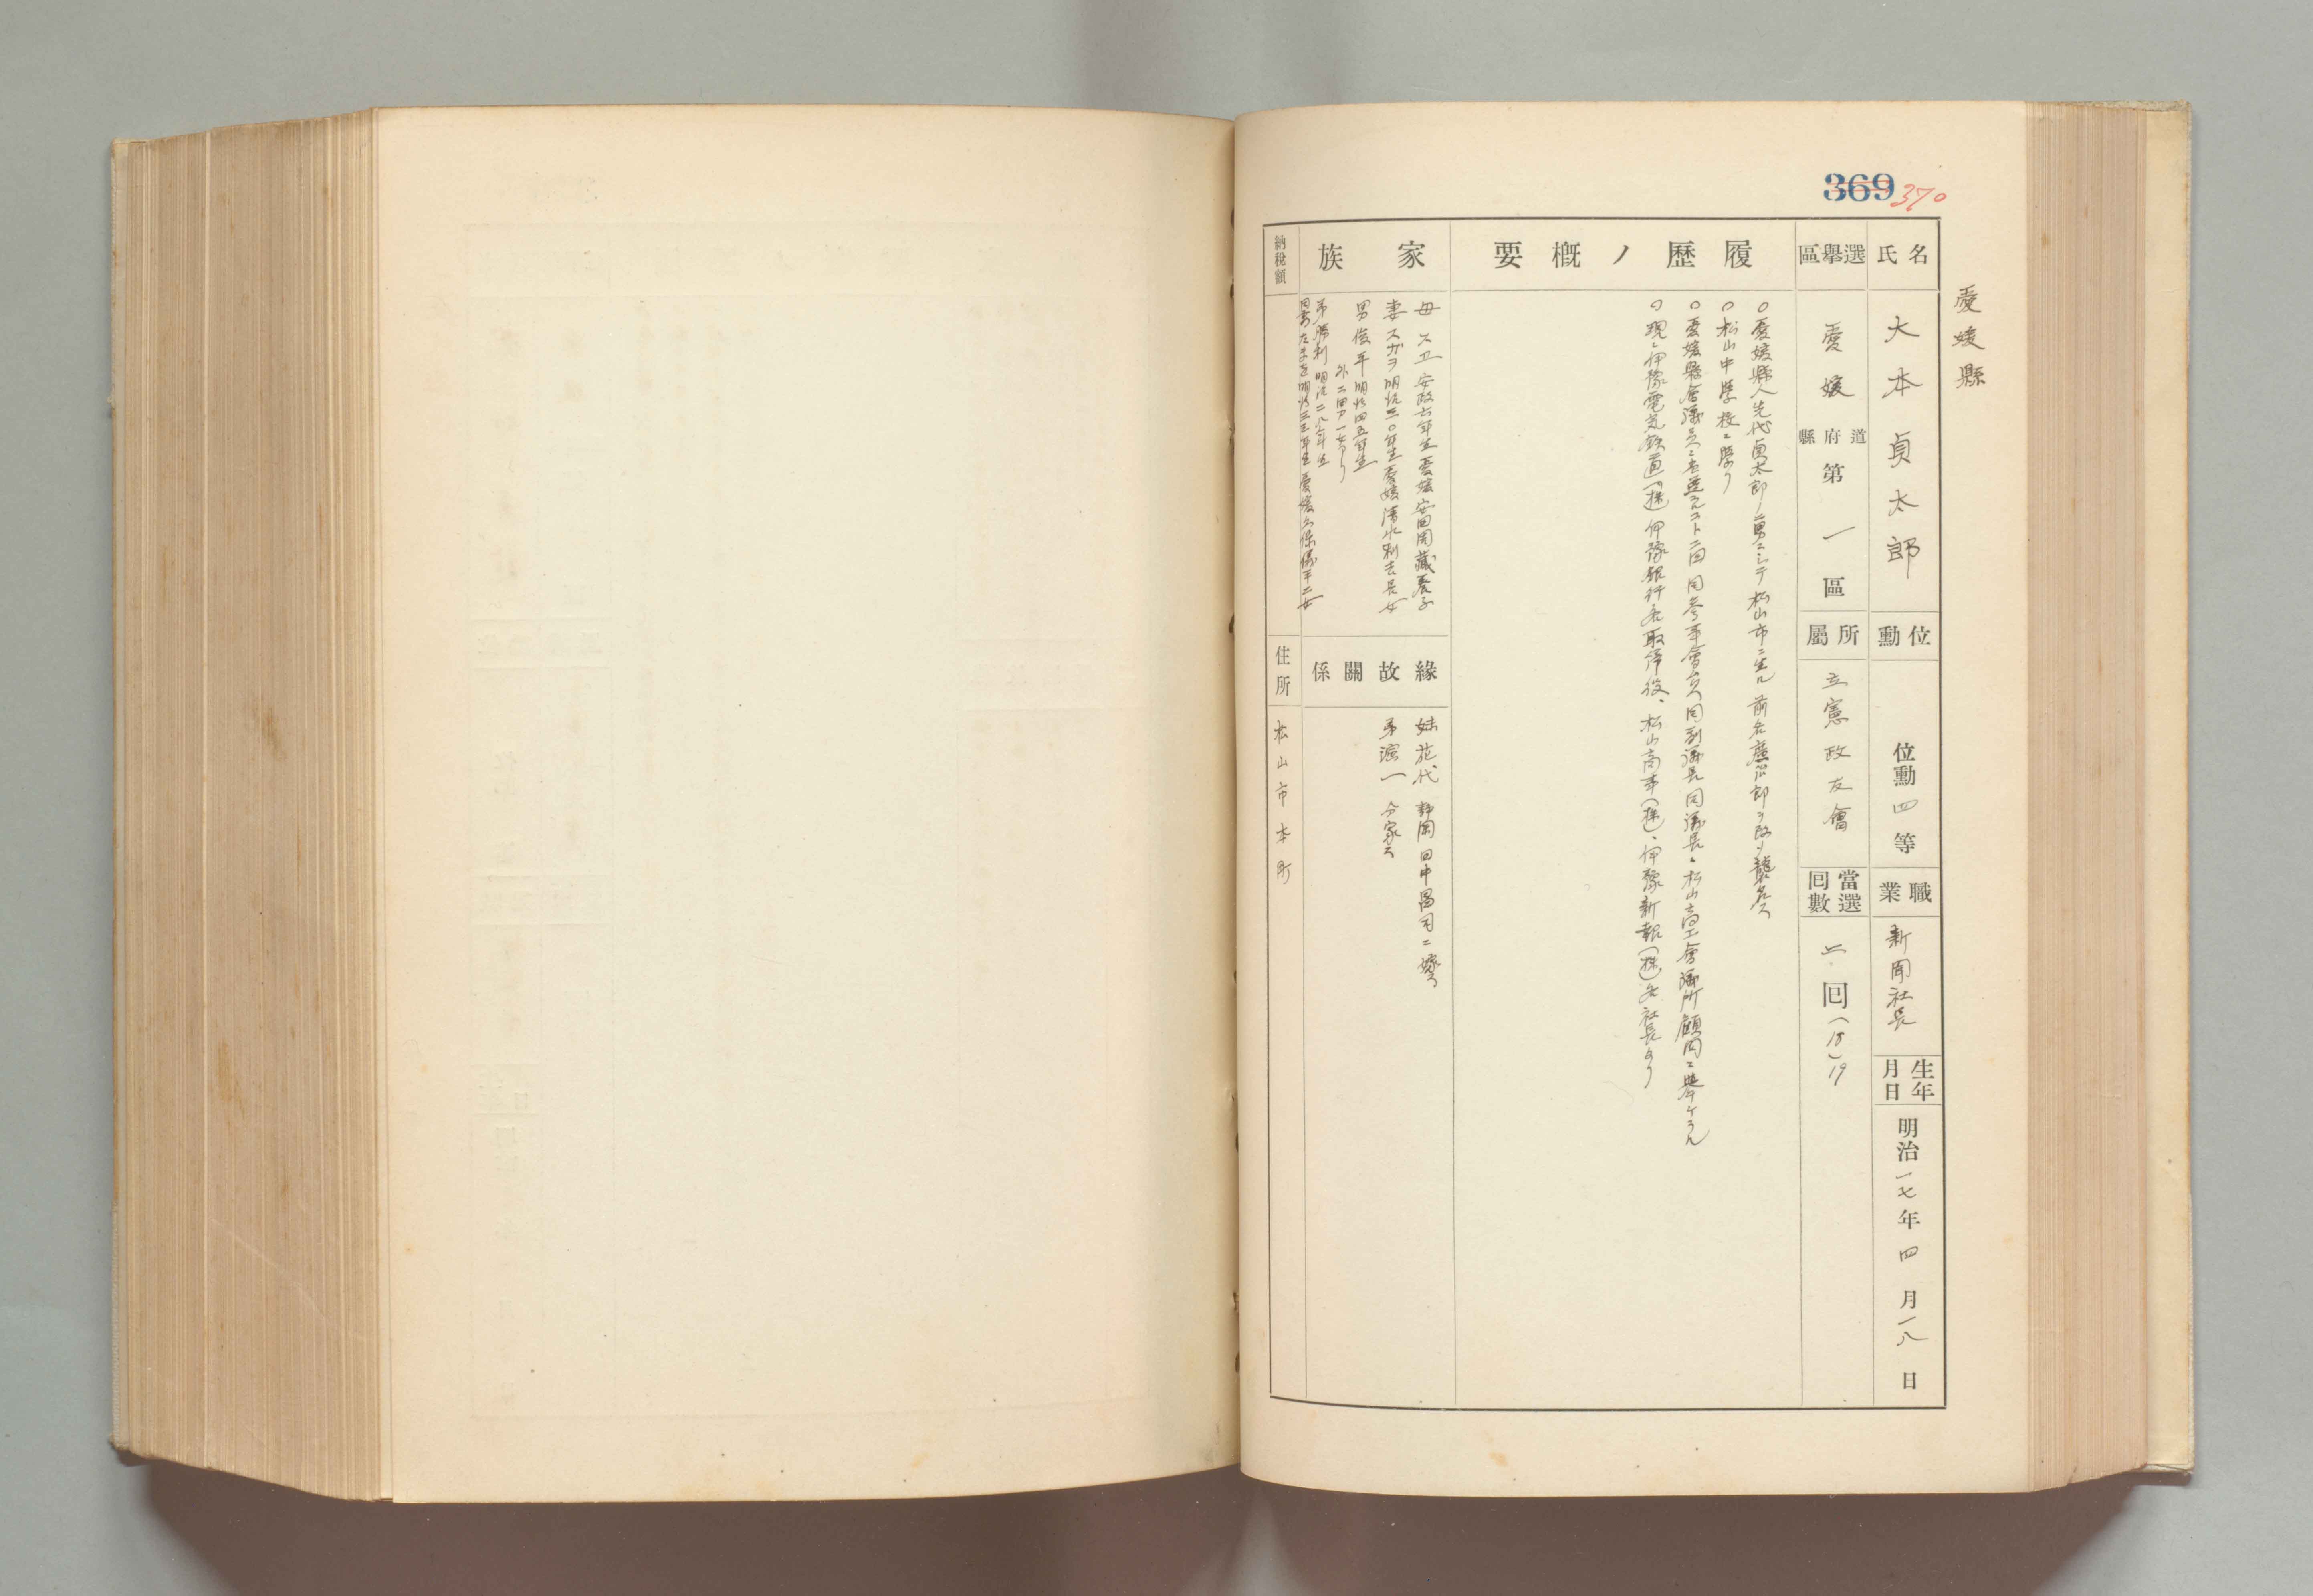 369 370
愛媛縣
氏名
大本貞太郎
位勳
位勳四等
職業
新聞社長
生年月日
明治一七年四月一八日
選擧區
愛媛 道府縣 第一區
所屬
立憲政友會
當選回數
二回(18)19
履歷ノ概要
○愛媛縣人先代貞太郎ノ二男ニシテ松山市ニ生ル 前名 治郎ヲ改メ襲名ス
○松山中學校ニ學フ
○愛媛縣會議員ニ 二回 同參事會員 同副議長 同議長、松山商工會議所顧問ニ擧ケラル
○現ニ伊豫電氣鐵道(株) 伊豫銀行各取締役、松山商事(株)、伊豫新報(株)各社長タリ
家族
母 スエ 安政六年生 愛媛 安田岡藏養子
妻 スガヲ 明治三〇年生 愛媛 清水利吉長女
男 俊平 明治四五年生
外二男一女アリ
弟 勝利 明治二八年生
同妻 明治三三年生 愛媛 久保儀平二女
緣故關係
妹 花代 靜岡 田中昌司ニ嫁ス
弟 一 分家ス
納稅額
住所
松山市本町